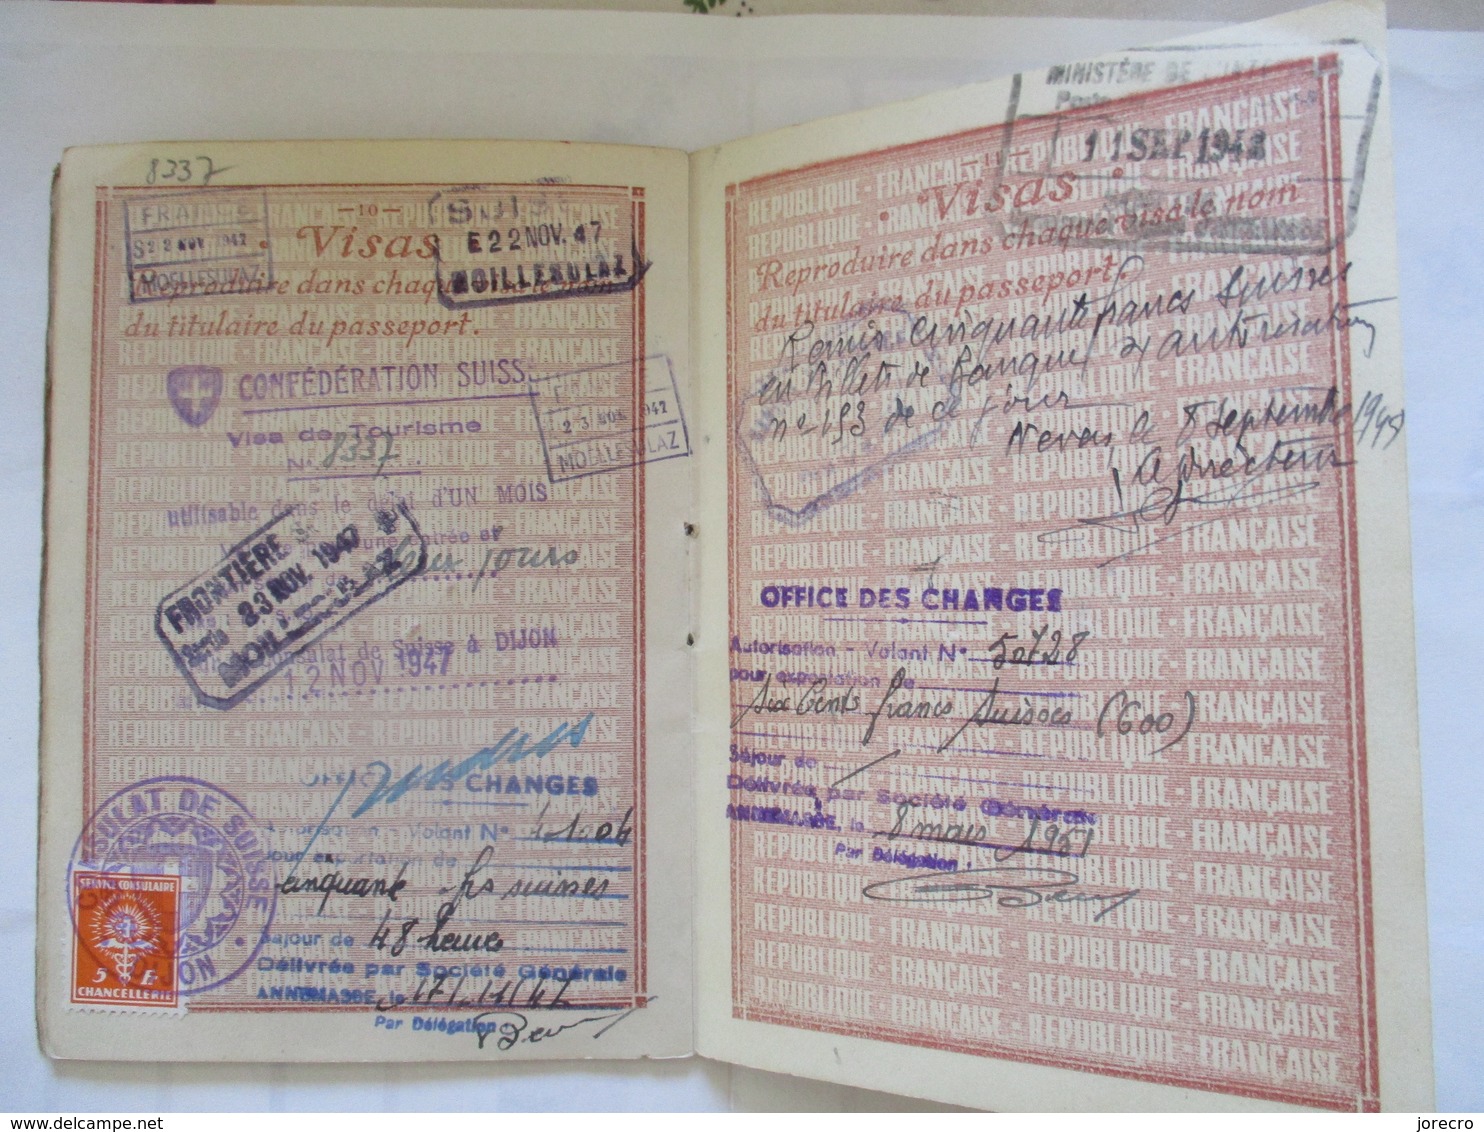 8337
FRANCE
S 22 NOV 1947
MOELLESULAZ
— 10 —
SUISSE
E 22 NOV. 47
MOILLESULAZ
Visas
Reproduire dans chaque visa le nom
du titulaire du passeport.
CONFÉDÉRATION SUISSE
Visa de Tourisme
N° 8337
utilisable dans le délai d'UN MOIS
jours
23 NOV 1947
MOELLESULAZ
FRONTIÈRE
Sortie 23 NOV. 1947
Consulat de Suisse à DIJON
12 NOV 1947
OFFICE DES CHANGES
Autorisation - Volant N° 41004
pour exportation de
cinquante frs suisses
Séjour de 48 heures
Délivrée par Société Générale
ANNEMASSE, le 17/11/47
Par Délégation
CONSULAT DE SUISSE
DIJON
SERVICE CONSULAIRE
5 Fr
CHANCELLERIE
MINISTÈRE DE L'INTÉRIEUR
11 SEP 1948
— 11 —
Visas
Reproduire dans chaque visa le nom
du titulaire du passeport.
Remis cinquante francs Suisses
en billets de banque
n° 193 de ce jour
Nevers, le 8 septembre
Le Directeur
OFFICE DES CHANGES
Autorisation - Volant N° 50728
pour exportation de
Six Cents francs Suisses (600)
Séjour de
Délivrée par Société Générale
ANNEMASSE, le 8 mars 1951
Par Délégation
REPUBLIQUE - FRANÇAISE - REPUBLIQUE - FRANÇAISE
delcampe.net
jorecro